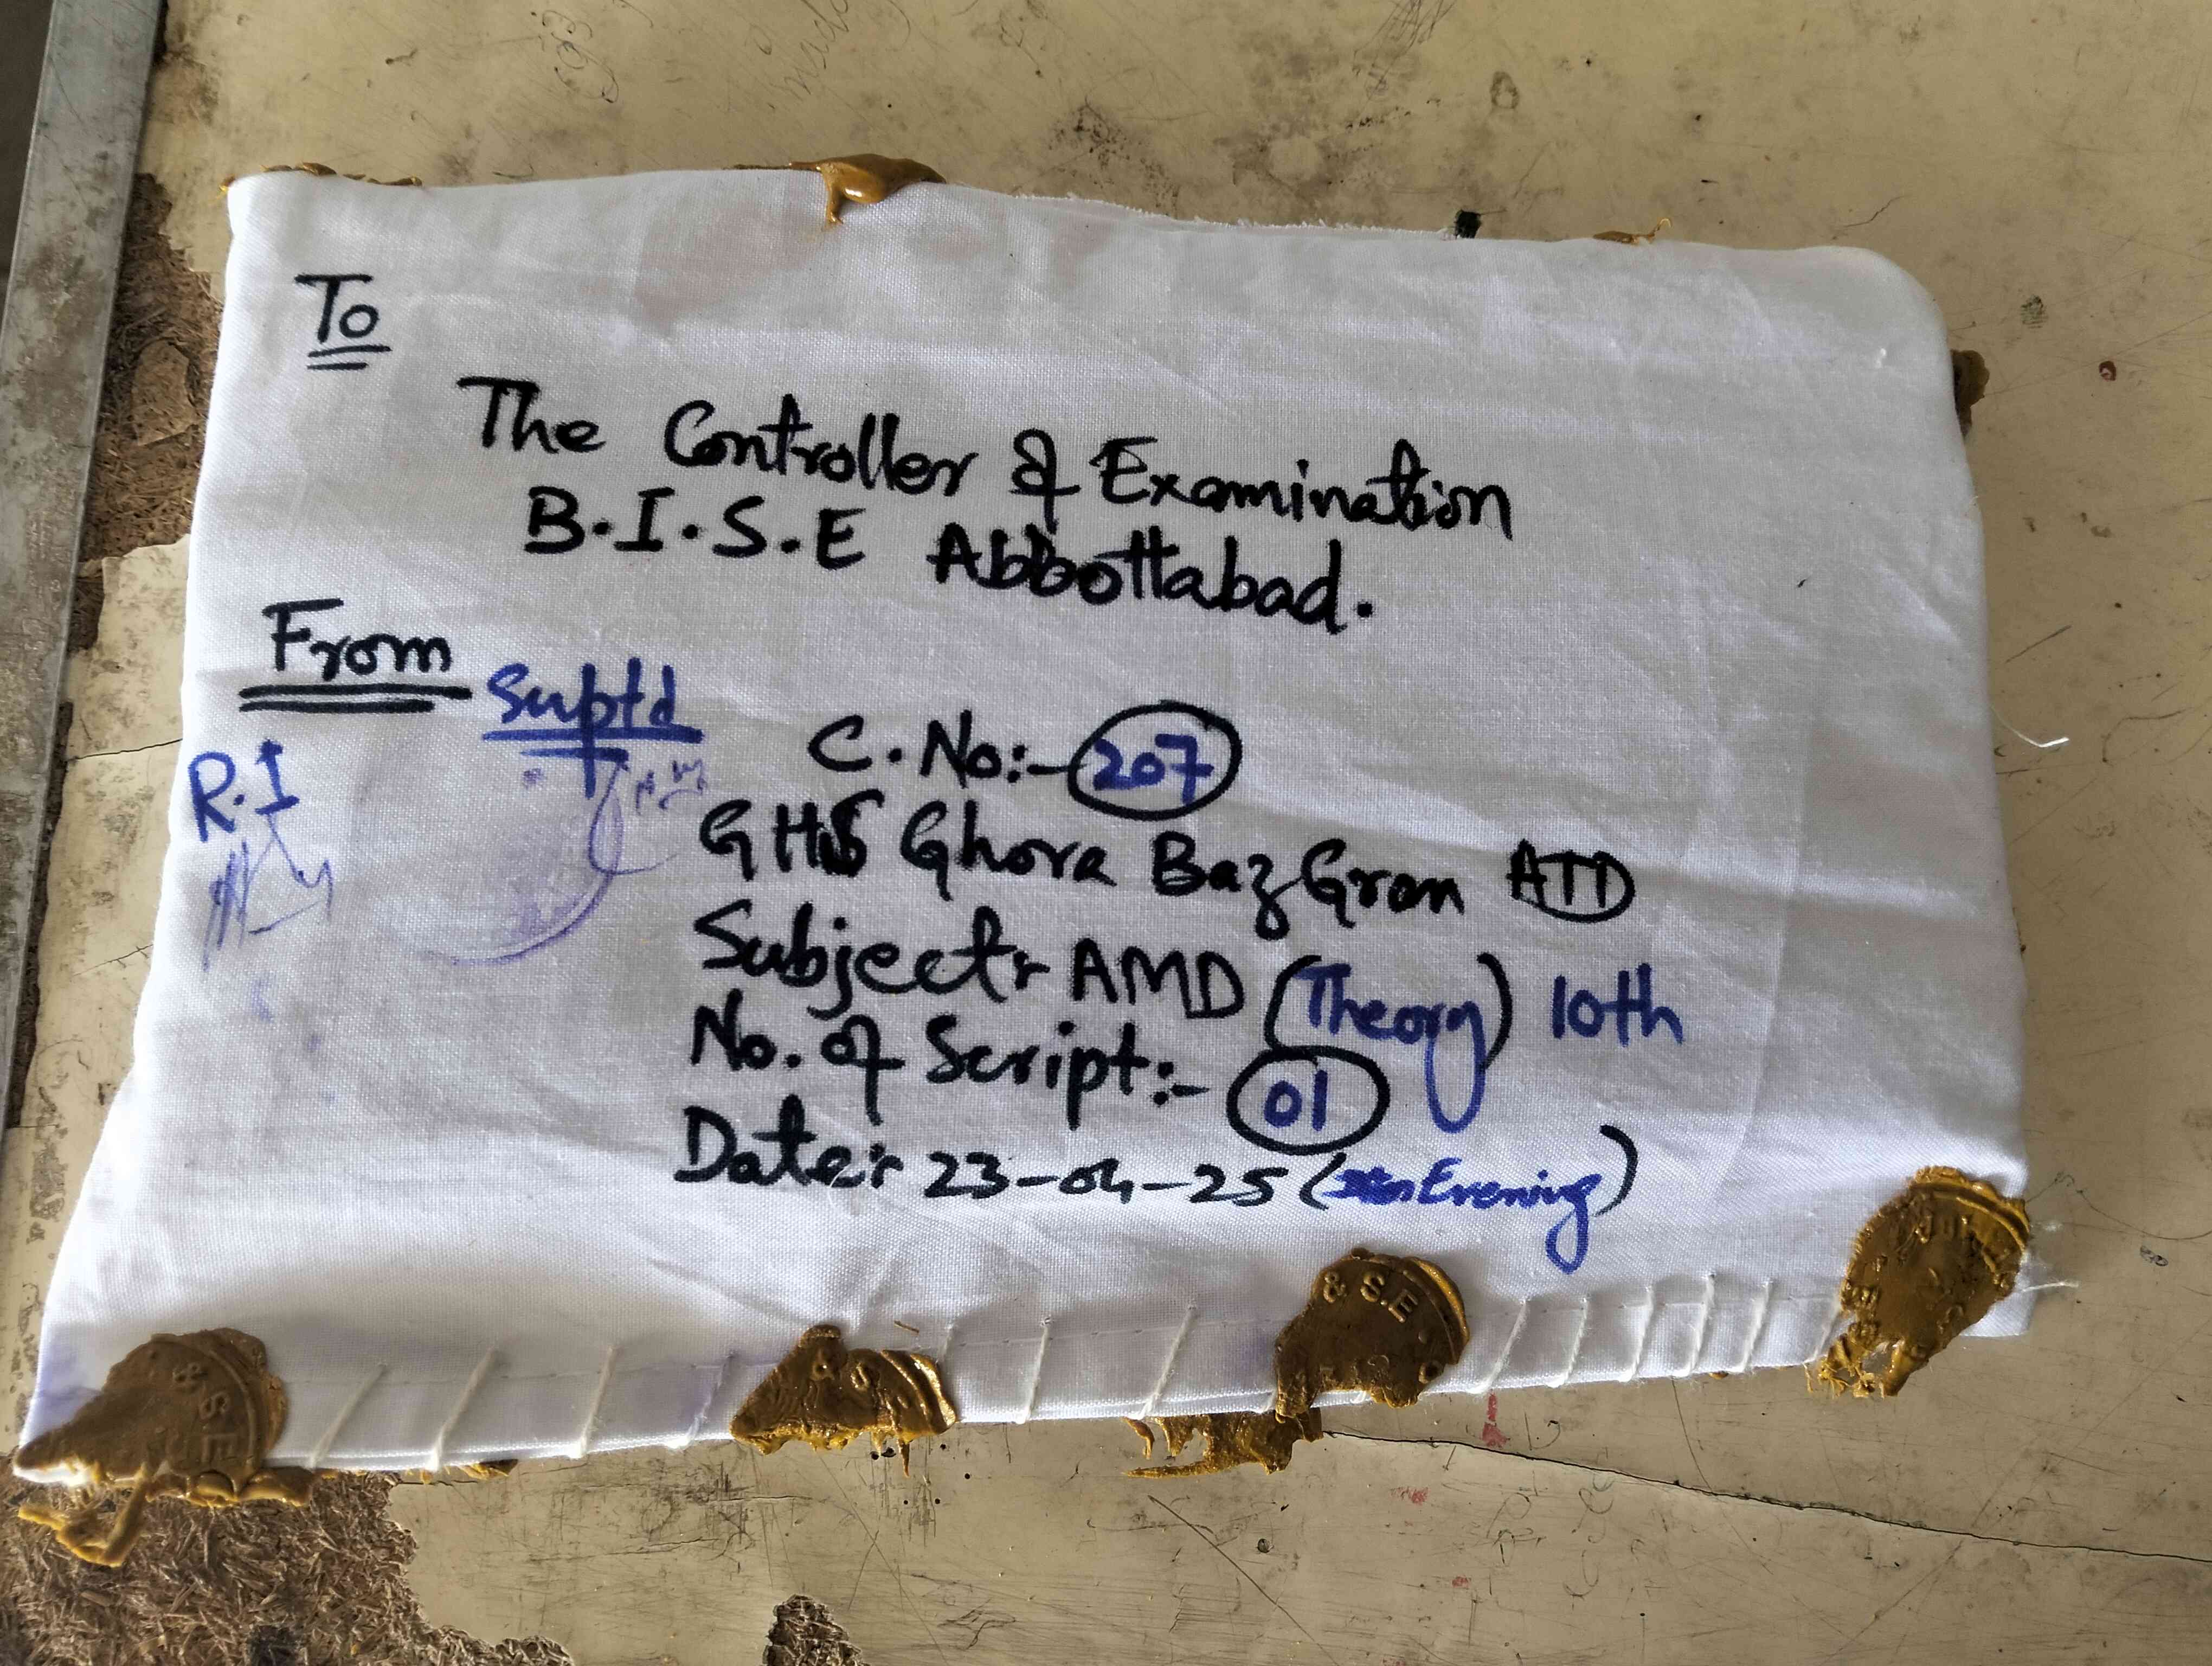 To
The Controller of Examination
B.I.S.E Abbottabad.
From
Suptd
R.I
C.No:- 207
GHS Ghora Baz Gran ATD
Subject:- AMD (Theory) 10th
No. of Script:- 01
Date:- 23-04-25 (Evening)
& S.E
& S
& S.E